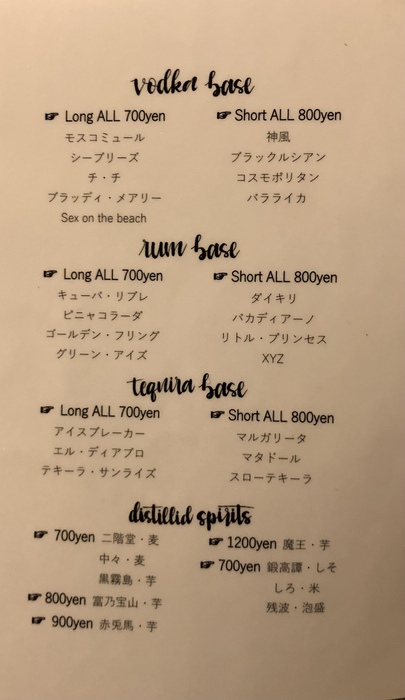 vodka base
☞ Long ALL 700yen
モスコミュール
シーブリーズ
チ・チ
ブラッディ・メアリー
Sex on the beach
☞ Short ALL 800yen
神風
ブラックルシアン
コスモポリタン
バラライカ
rum base
☞ Long ALL 700yen
キューバ・リブレ
ピニャコラーダ
ゴールデン・フリング
グリーン・アイズ
☞ Short ALL 800yen
ダイキリ
バカディアーノ
リトル・プリンセス
XYZ
tequira base
☞ Long ALL 700yen
アイスブレーカー
エル・ディアブロ
テキーラ・サンライズ
☞ Short ALL 800yen
マルガリータ
マタドール
スローテキーラ
distillid spirits
☞ 700yen 二階堂・麦
中々・麦
黒霧島・芋
☞ 800yen 富乃宝山・芋
☞ 900yen 赤兎馬・芋
☞ 1200yen 魔王・芋
☞ 700yen 鍛高譚・しそ
しろ・米
残波・泡盛